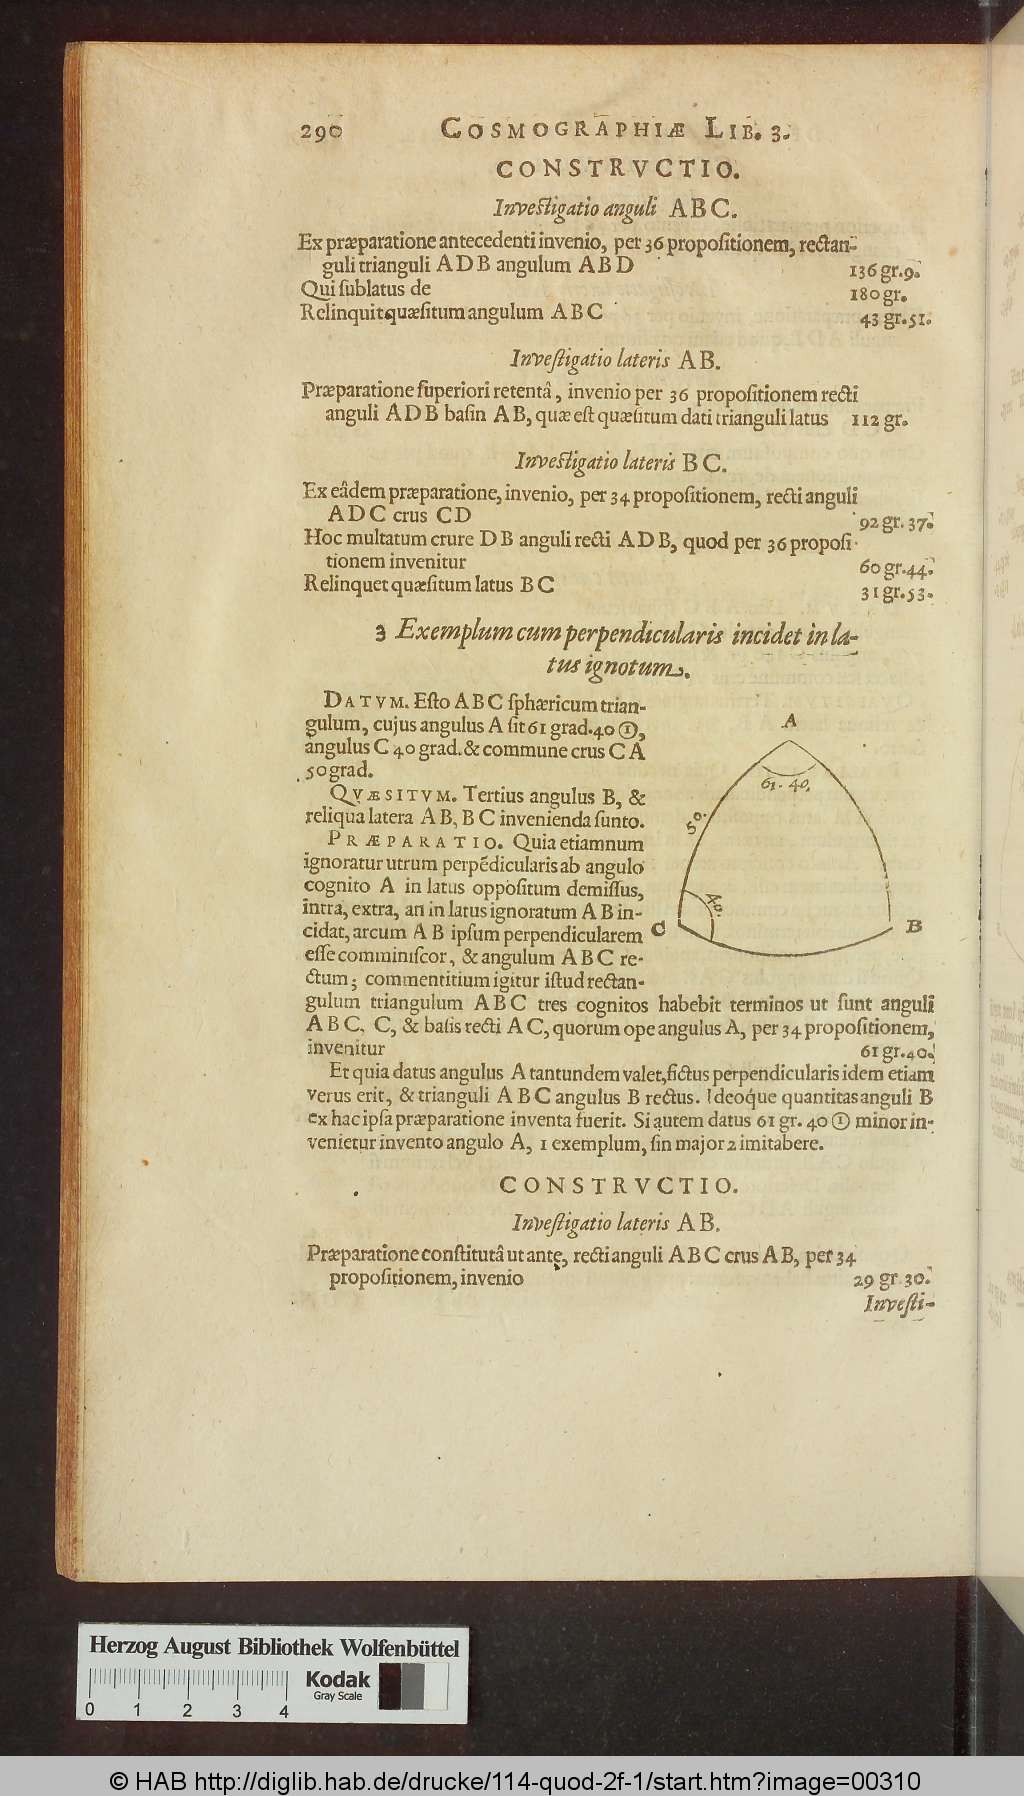 290 COSMOGRAPHIÆ LIB. 3.
CONSTRVCTIO.
Investigatio anguli ABC.
Ex præparatione antecedenti invenio, per 36 propositionem, rectan-
guli trianguli ADB angulum ABD 136 gr. 9.
Qui sublatus de 180 gr.
Relinquit quæsitum angulum ABC 43 gr. 51.
Investigatio lateris AB.
Præparatione superiori retentâ, invenio per 36 propositionem recti
anguli ADB basin AB, quæ est quæsitum dati trianguli latus 112 gr.
Investigatio lateris BC.
Ex eâdem præparatione, invenio, per 34 propositionem, recti anguli
ADC crus CD 92 gr. 37.
Hoc multatum crure DB anguli recti ADB, quod per 36 proposi-
tionem invenitur 60 gr. 44.
Relinquet quæsitum latus BC 31 gr. 53.
3 Exemplum cum perpendicularis incidet in la-
tus ignotum.
DATVM. Esto ABC sphæricum trian-
gulum, cujus angulus A sit 61 grad. 40 ①,
angulus C 40 grad. & commune crus CA
50 grad.
QVÆSITVM. Tertius angulus B, &
reliqua latera AB, BC invenienda sunto.
PRÆPARATIO. Quia etiamnum
ignoratur utrum perpēdicularis ab angulo
cognito A in latus oppositum demissus,
intra, extra, an in latus ignoratum AB in-
cidat, arcum AB ipsum perpendicularem
esse comminiscor, & angulum ABC re-
ctum; commentitium igitur istud rectan-
gulum triangulum ABC tres cognitos habebit terminos ut sunt anguli
ABC, C, & basis recti AC, quorum ope angulus A, per 34 propositionem,
invenitur 61 gr. 40.
Et quia datus angulus A tantundem valet, fictus perpendicularis idem etiam
verus erit, & trianguli ABC angulus B rectus. Ideoq́ue quantitas anguli B
ex hac ipsa præparatione inventa fuerit. Si autem datus 61 gr. 40 ① minor in-
venietur invento angulo A, 1 exemplum, sin major 2 imitabere.
A
61. 40.
50.
40.
C
B
CONSTRVCTIO.
Investigatio lateris AB.
Præparatione constitutâ ut ante, recti anguli ABC crus AB, per 34
propositionem, invenio 29 gr 30.
Investi-
Herzog August Bibliothek Wolfenbüttel
Kodak
Gray Scale
0 1 2 3 4
© HAB http://diglib.hab.de/drucke/114-quod-2f-1/start.htm?image=00310